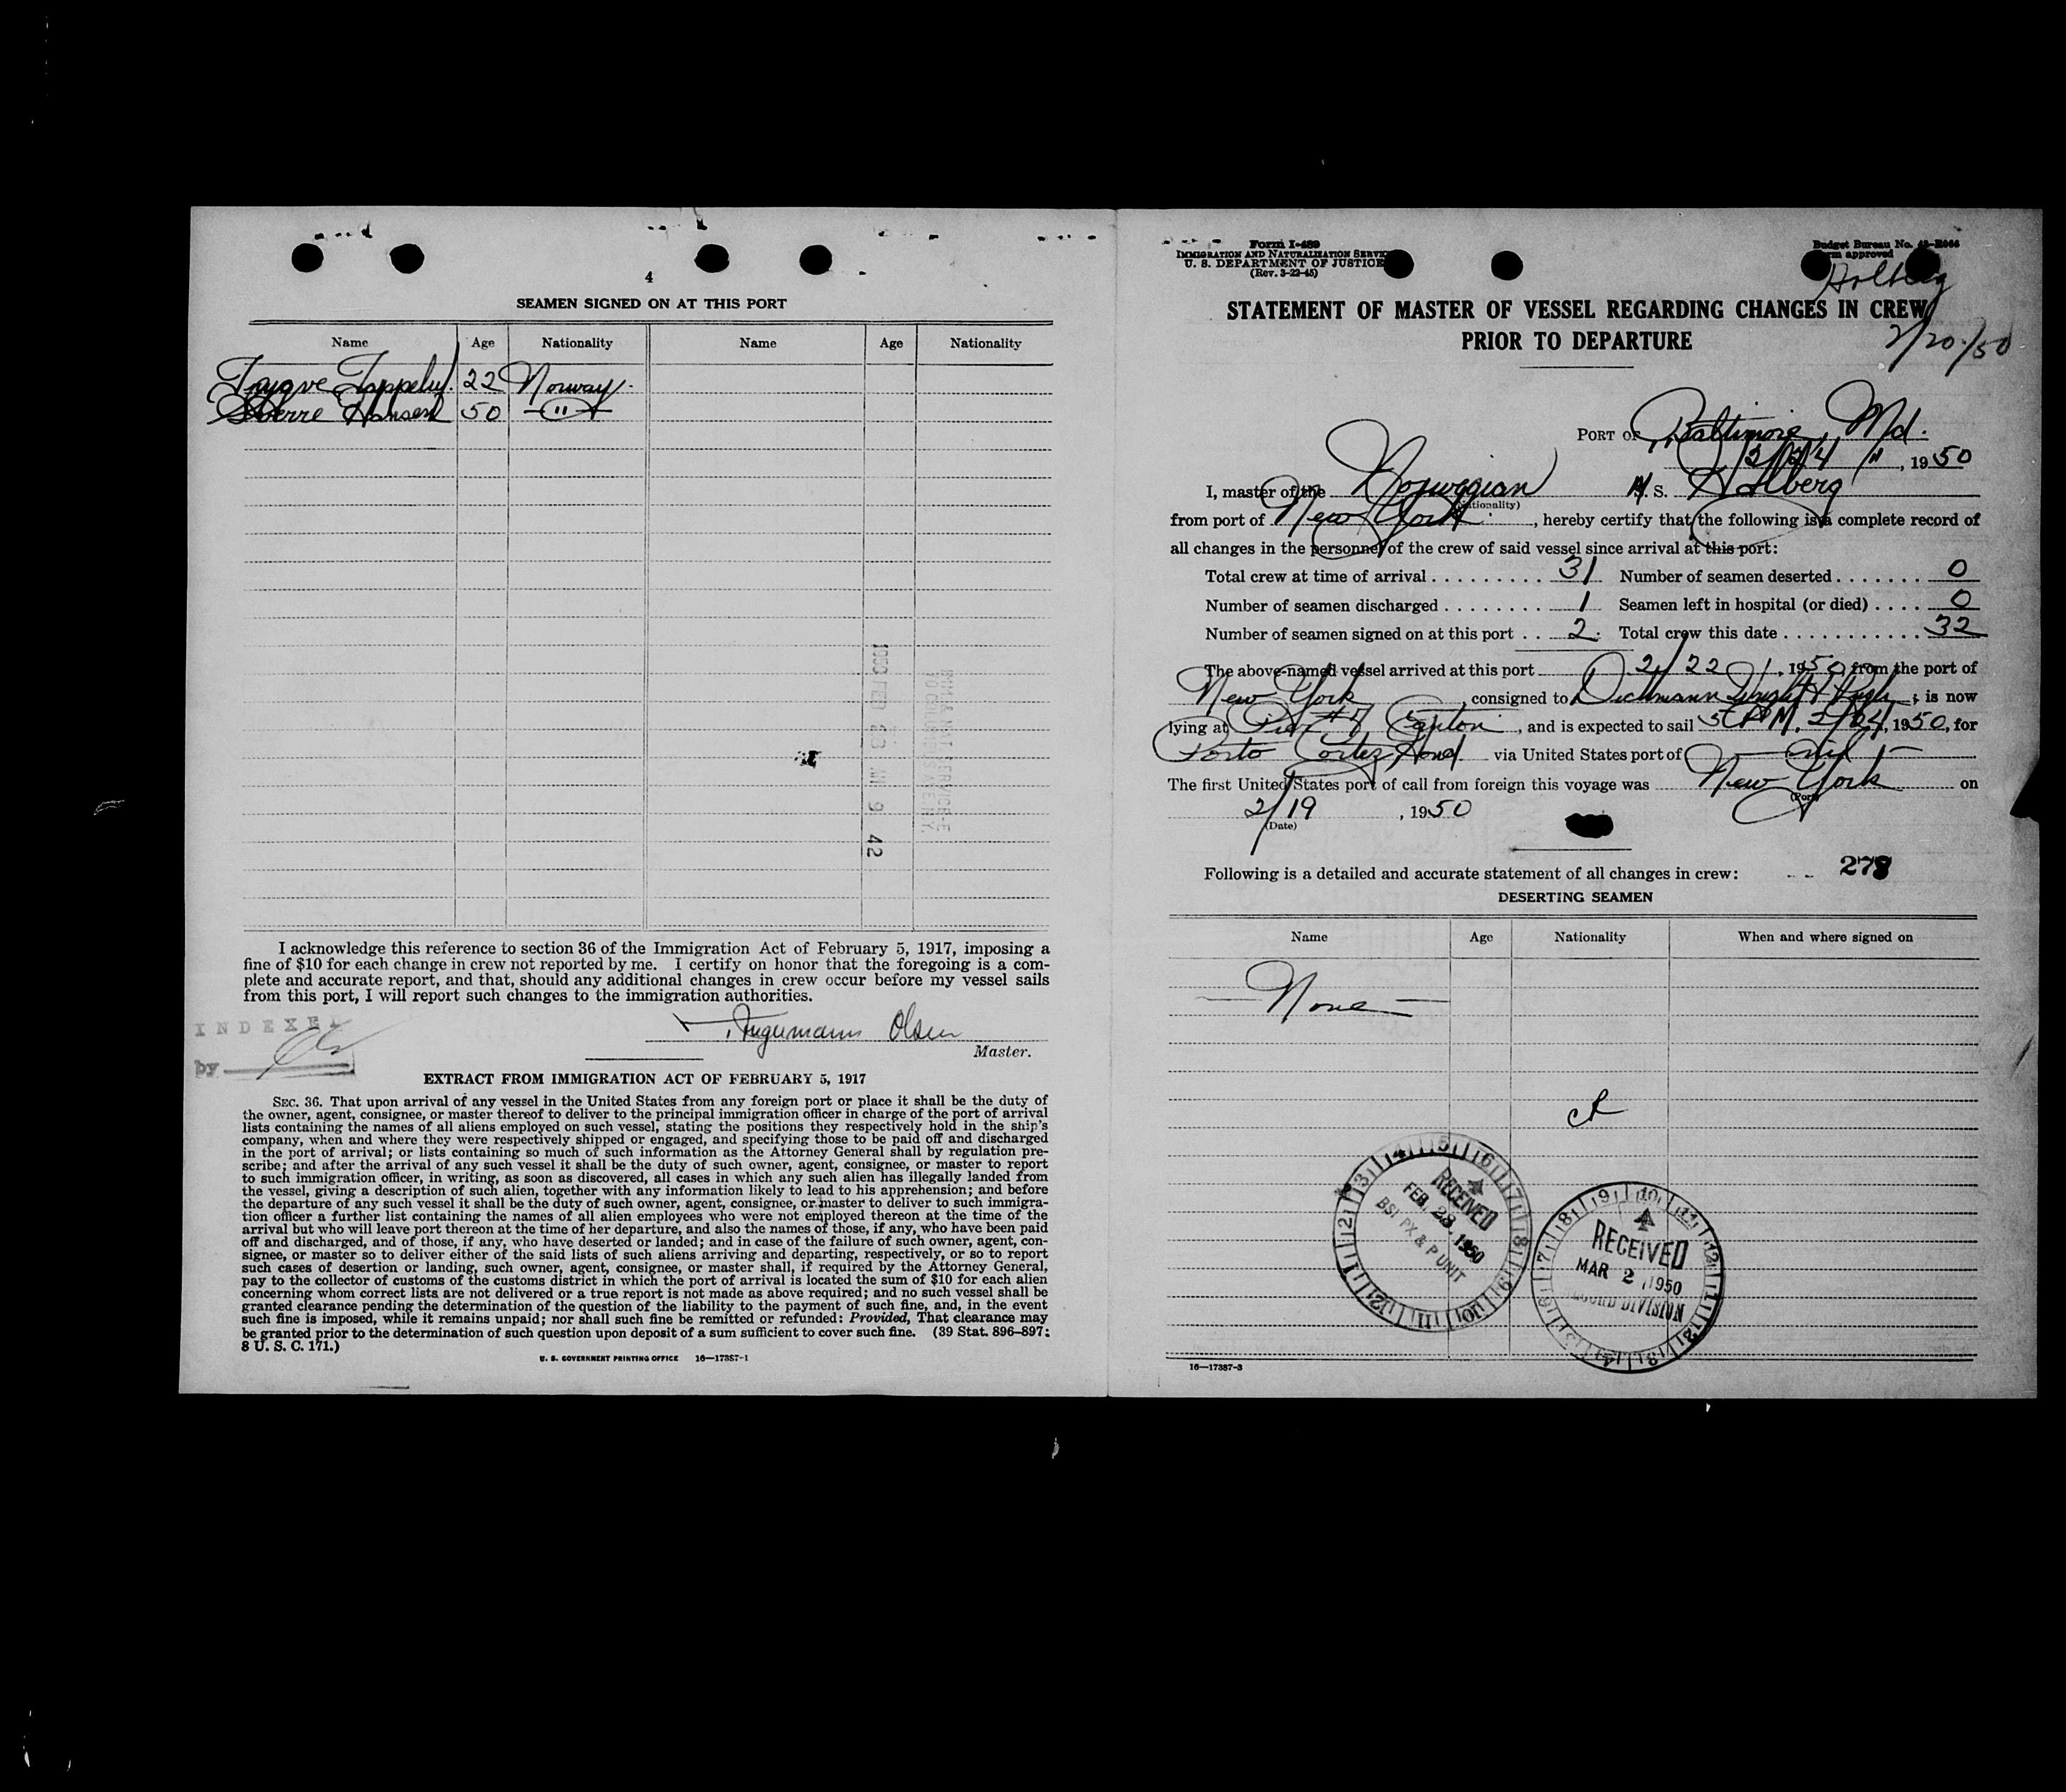 4
SEAMEN SIGNED ON AT THIS PORT
Name Age Nationality Name Age Nationality
Trygve 22 Norway.
Sverre Hansen 50 — " —
1950 FEB 28 AM 9 42
I acknowledge this reference to section 36 of the Immigration Act of February 5, 1917, imposing a
fine of $10 for each change in crew not reported by me. I certify on honor that the foregoing is a com-
plete and accurate report, and that, should any additional changes in crew occur before my vessel sails
from this port, I will report such changes to the immigration authorities.
INDEXED
by
Ingvmann Olsen
Master.
EXTRACT FROM IMMIGRATION ACT OF FEBRUARY 5, 1917
SEC. 36. That upon arrival of any vessel in the United States from any foreign port or place it shall be the duty of
the owner, agent, consignee, or master thereof to deliver to the principal immigration officer in charge of the port of arrival
lists containing the names of all aliens employed on such vessel, stating the positions they respectively hold in the ship's
company, when and where they were respectively shipped or engaged, and specifying those to be paid off and discharged
in the port of arrival; or lists containing so much of such information as the Attorney General shall by regulation pre-
scribe; and after the arrival of any such vessel it shall be the duty of such owner, agent, consignee, or master to report
to such immigration officer, in writing, as soon as discovered, all cases in which any such alien has illegally landed from
the vessel, giving a description of such alien, together with any information likely to lead to his apprehension; and before
the departure of any such vessel it shall be the duty of such owner, agent, consignee, or master to deliver to such immigra-
tion officer a further list containing the names of all alien employees who were not employed thereon at the time of the
arrival but who will leave port thereon at the time of her departure, and also the names of those, if any, who have been paid
off and discharged, and of those, if any, who have deserted or landed; and in case of the failure of such owner, agent, con-
signee, or master so to deliver either of the said lists of such aliens arriving and departing, respectively, or so to report
such cases of desertion or landing, such owner, agent, consignee, or master shall, if required by the Attorney General,
pay to the collector of customs of the customs district in which the port of arrival is located the sum of $10 for each alien
concerning whom correct lists are not delivered or a true report is not made as above required; and no such vessel shall be
granted clearance pending the determination of the question of the liability to the payment of such fine, and, in the event
such fine is imposed, while it remains unpaid; nor shall such fine be remitted or refunded: Provided, That clearance may
be granted prior to the determination of such question upon deposit of a sum sufficient to cover such fine. (39 Stat. 896–897;
8 U. S. C. 171.)
U. S. GOVERNMENT PRINTING OFFICE 16—17387-1
Form I-489
IMMIGRATION AND NATURALIZATION SERVICE
U. S. DEPARTMENT OF JUSTICE
(Rev. 3-22-45)
Budget Bureau No.
approved
Holberg
2/20/50
STATEMENT OF MASTER OF VESSEL REGARDING CHANGES IN CREW
PRIOR TO DEPARTURE
PORT OF Baltimore, Md.
2/24, 1950
I, master of the Norwegian M. S. Holberg
(Nationality)
from port of New York, hereby certify that the following is a complete record of
all changes in the personnel of the crew of said vessel since arrival at this port:
Total crew at time of arrival 31 Number of seamen deserted 0
Number of seamen discharged 1 Seamen left in hospital (or died) 0
Number of seamen signed on at this port 2 Total crew this date 32
The above-named vessel arrived at this port 2/22, 1950, from the port of
New York consigned to Dichmann Wright & Pugh; is now
lying at Pier #7 Canton, and is expected to sail 5 PM. 2/24, 1950, for
Porto Cortez, Hond. via United States port of — nil —
The first United States port of call from foreign this voyage was New York on
(Port)
2/19, 1950
(Date)
Following is a detailed and accurate statement of all changes in crew: 278
DESERTING SEAMEN
Name Age Nationality When and where signed on
— None —
RECEIVED
FEB. 28. 1950
BSI PX & P UNIT
RECEIVED
MAR 2 1950
RECORD DIVISION
16—17387-3